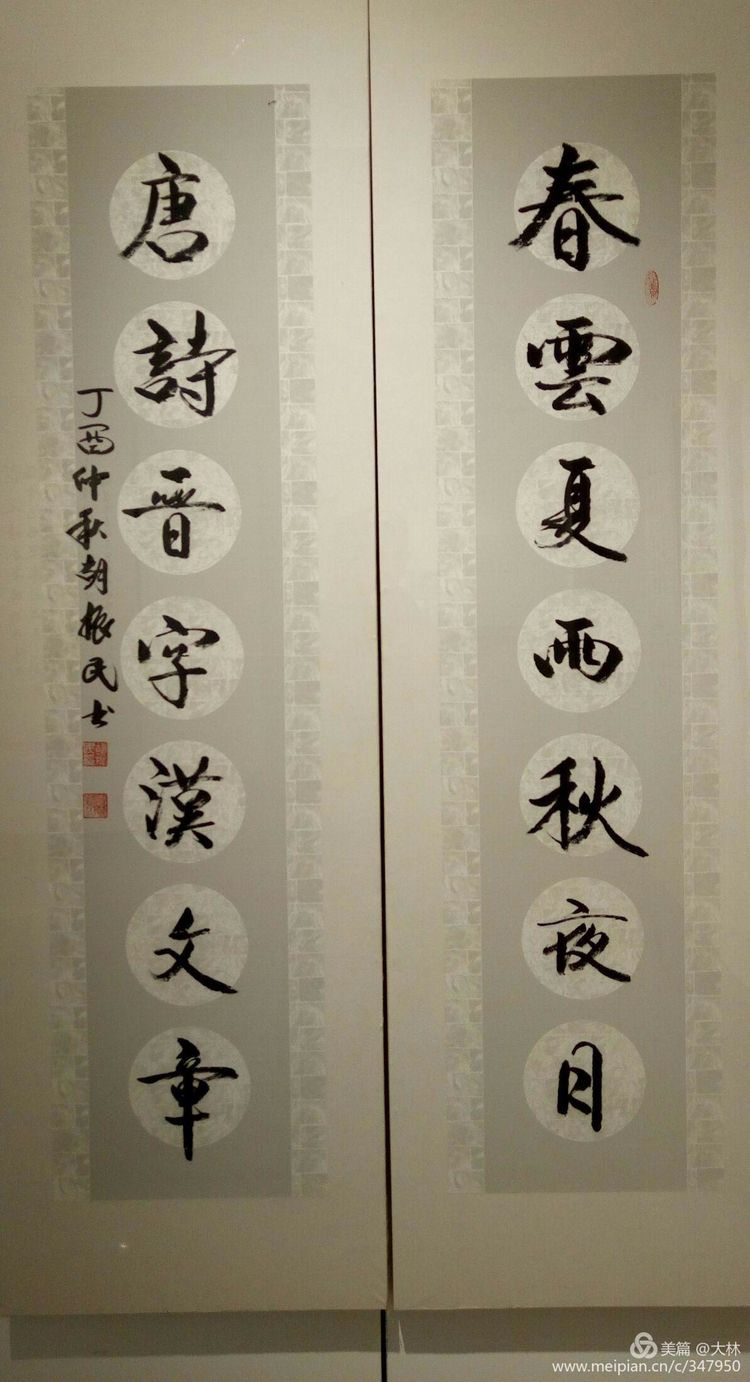 春雲夏雨秋夜月
唐詩晋字漢文章
丁酉仲秋胡振民书
美篇 @大林
www.meipian.cn/c/347950